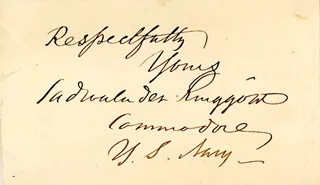 Respectfully
Yours
Cadwalader Ringgold
Commodore
U. S. Navy